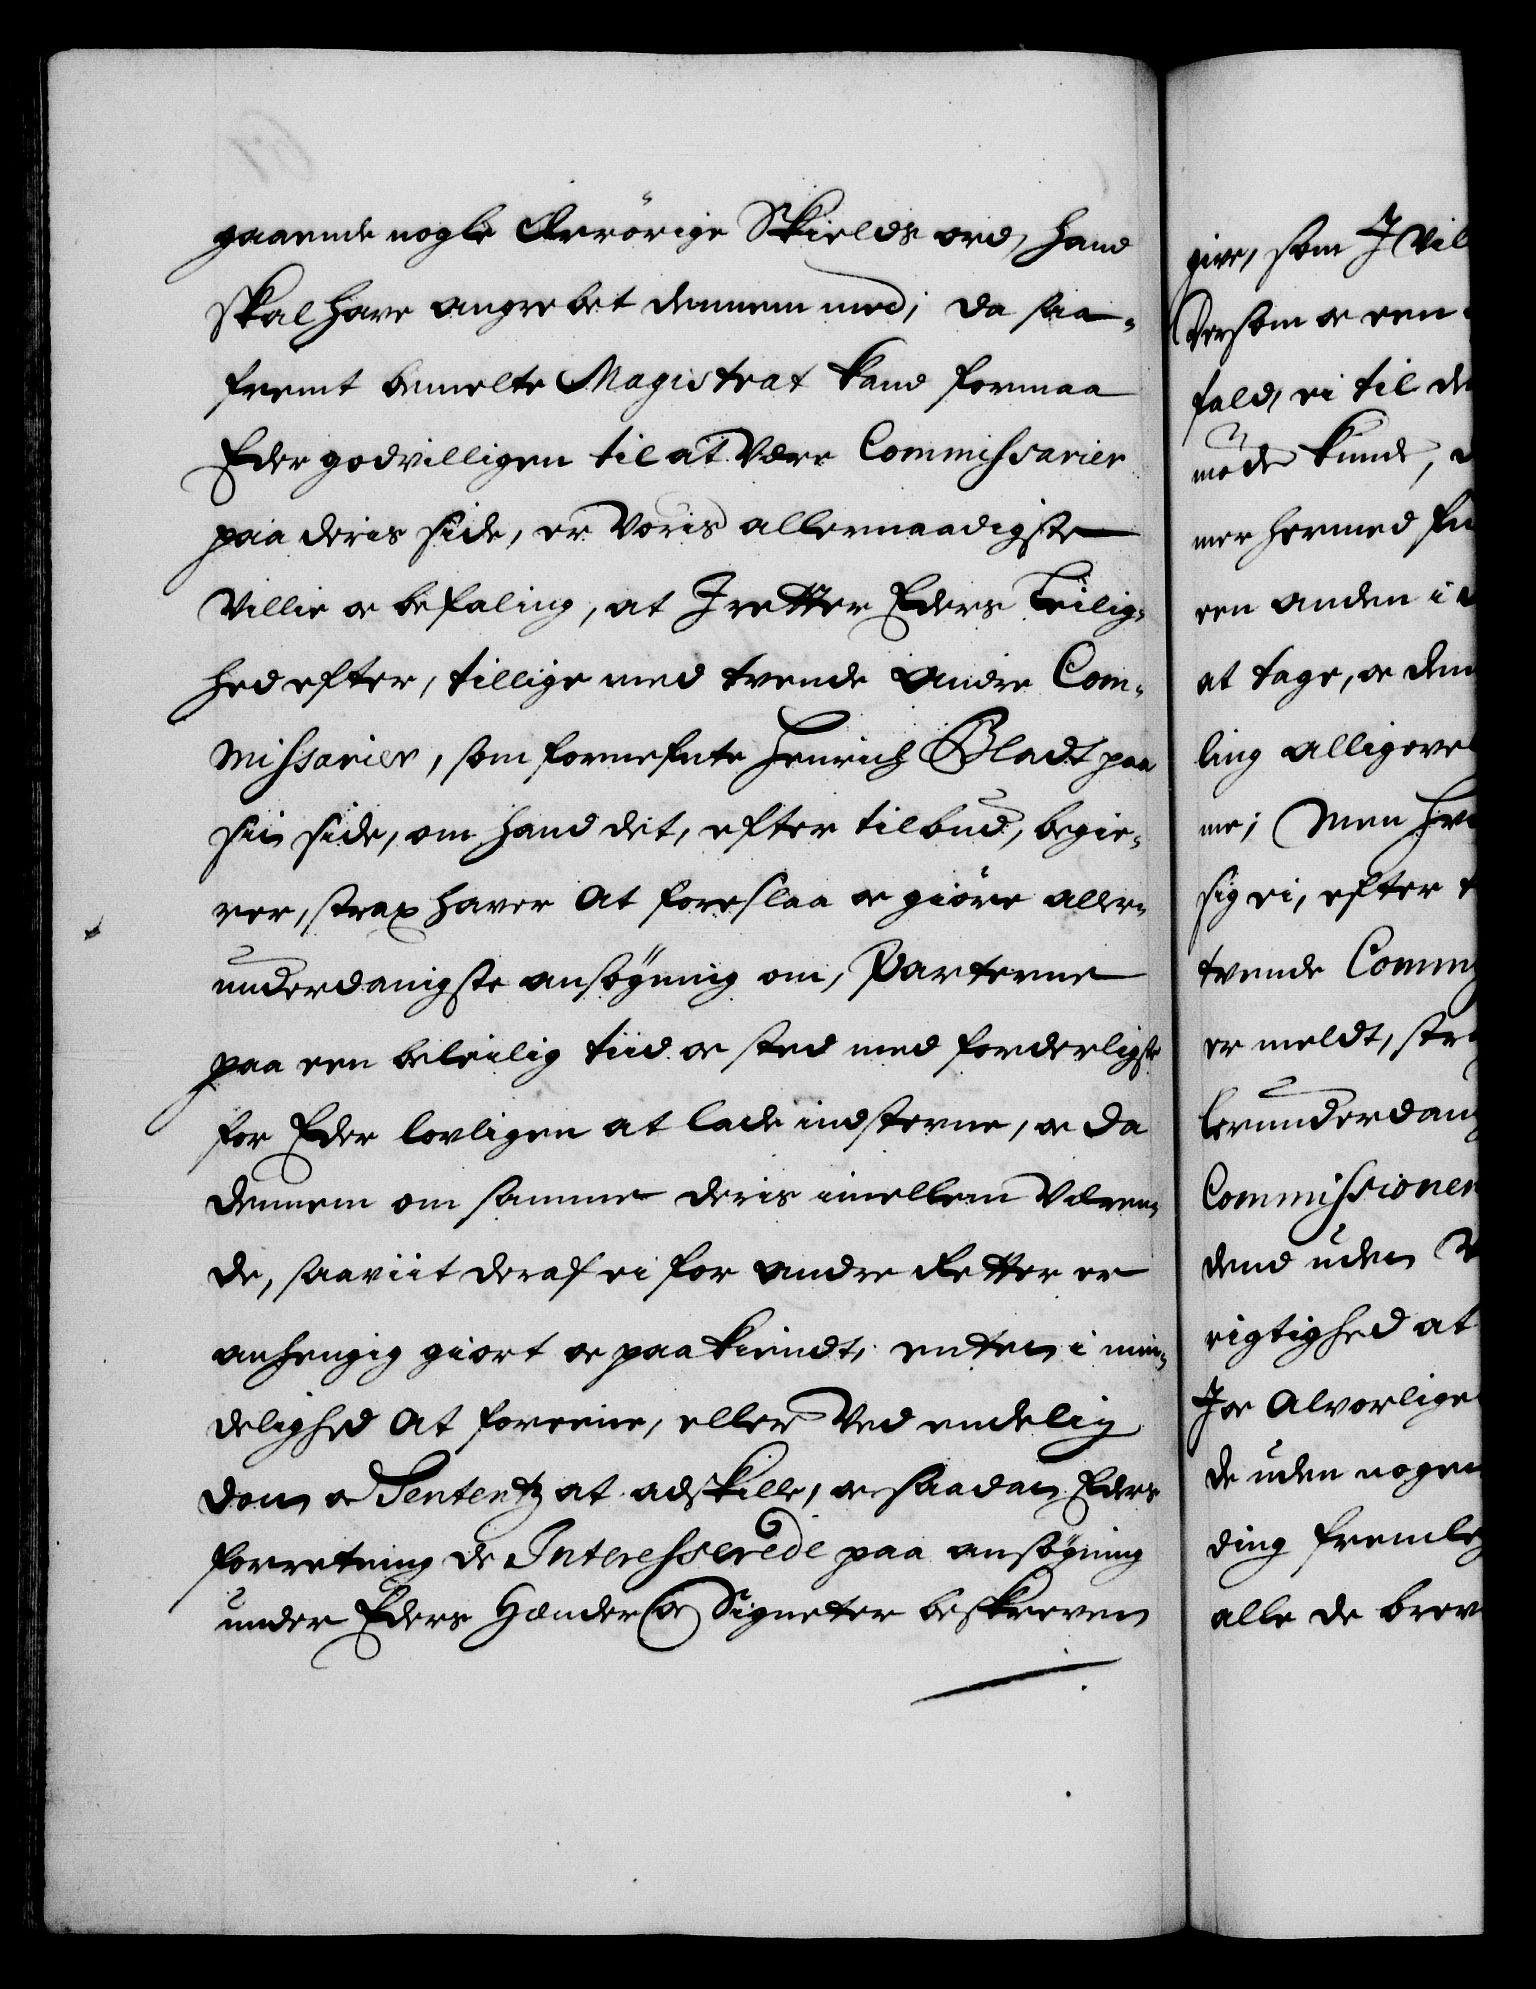 gaaende nogle ærrörige Skields ord, hand
skal have angrebet dennem med; da saa-
fremt bemelte Magistrat kand formaa
Eder godvilligen til at være Commissarier
paa deris side, er Voris allernaadigste
Villie og befaling, at I retter Eders Leilig-
hed efter, tillige med tvende andre Com-
missarier, som fornefnte Henrich Bladt paa
sin side, om hand det, efter tilbud, begie-
rer, strax haver at foreslaa og giöre aller-
underdanigste ansøgning om, Parterne
paa een beleilig tiid og sted med forderligste
for Eder lovligen at lade indstevne, og da
dennem om samme deris imellem væren-
de, saaviit deraf ei for andre Retter er
anhengig giort og paakiendt, enten i min-
delighed at foreene, eller ved endelig
dom og Sententz at adskille, og saadan Eders
forretning de Interesserede paa ansøgning
under Eders Hænder og Signeter beskreven
give, som I vil
Dersom og een
fald, ei til de
möde kunde,
mer hermed
een anden i
at tage, og dem
ling alligevel
me; Men
sig ei, efter
tvende Commi
er meldt,
lerunderdani
Commissionen
dend uden
rigtighed at
I og alvorligen
de uden nogen
ding fremle
alle de brev